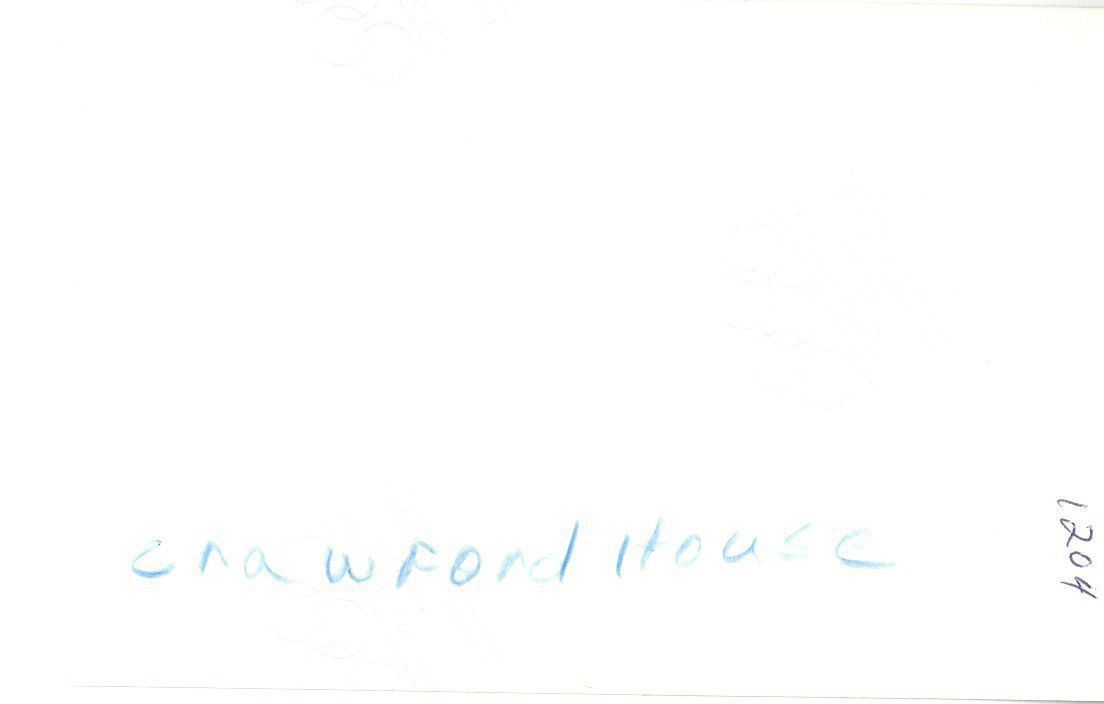 crawford House
1204